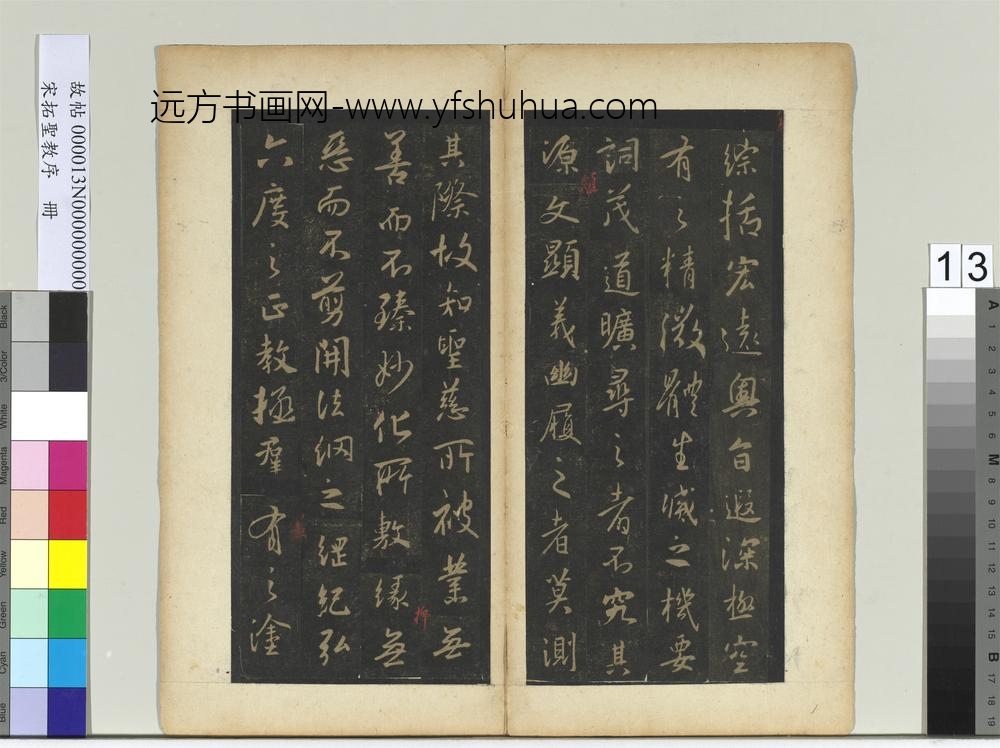 远方书画网-www.yfshuhua.com
故帖000013N000000000
宋拓聖教序 冊
13
綜括宏遠奧旨遐深極空
有之精微體生滅之機要
詞茂道曠尋之者不究其
源文顯義幽履之者莫測
其際故知聖慈所被業無
善而不臻妙化所敷緣無
惡而不剪開法網之綱紀弘
六度之正教拯群有之塗
Black
3/Color
White
Magenta
Red
Yellow
Green
Cyan
Blue
A 1 2 3 4 5 6 M 8 9 10 11 12 13 14 15 B 17 18 19